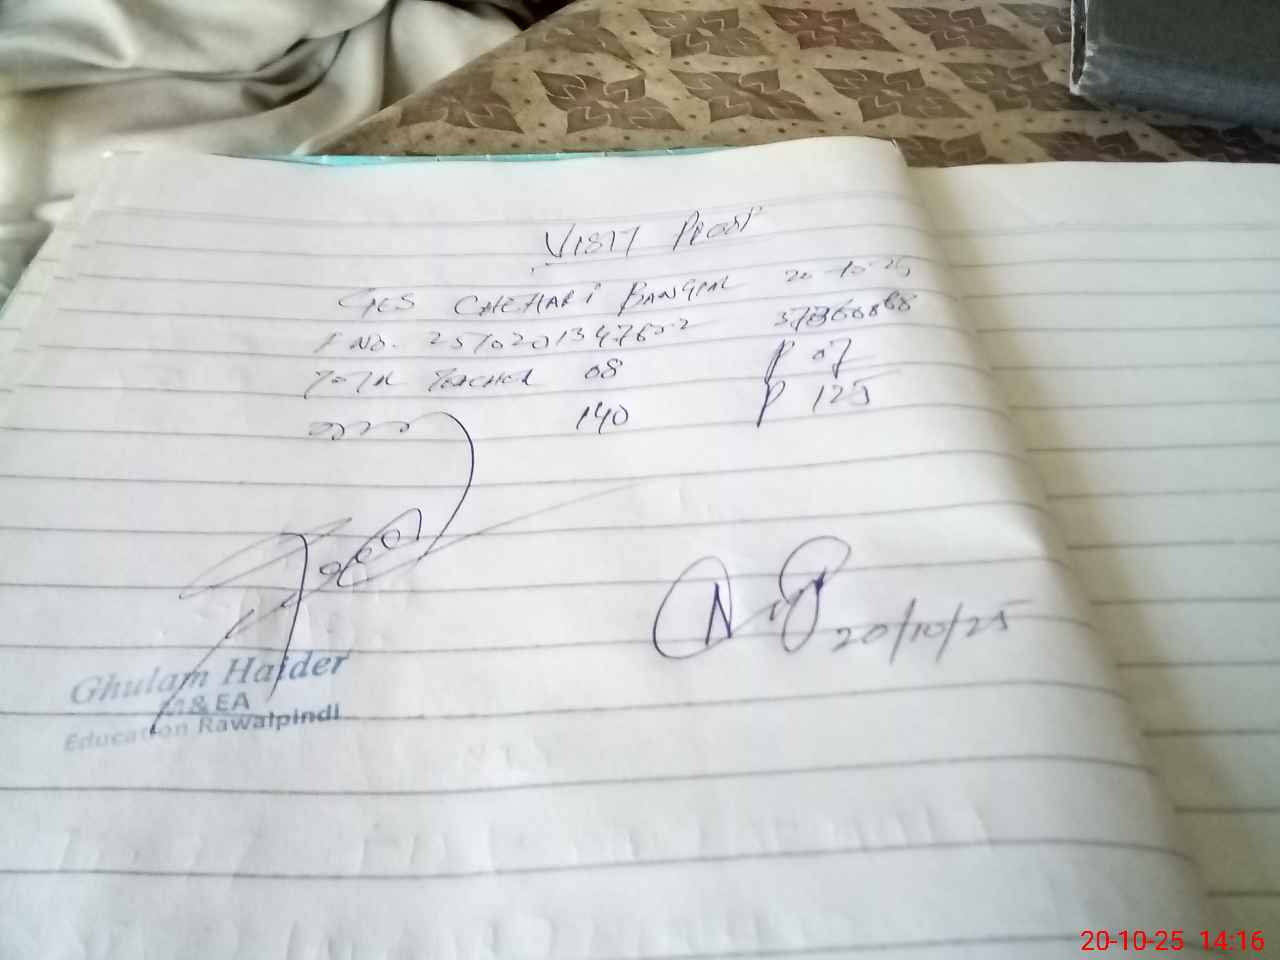 VISIT PROOF
GES CHEHARI BANGIAL 20-10-25
TOTAL TEACHER 08 P 07
140 P 125
20/10/25
Ghulam Haider
M&EA
Education Rawalpindi
20-10-25 14:16